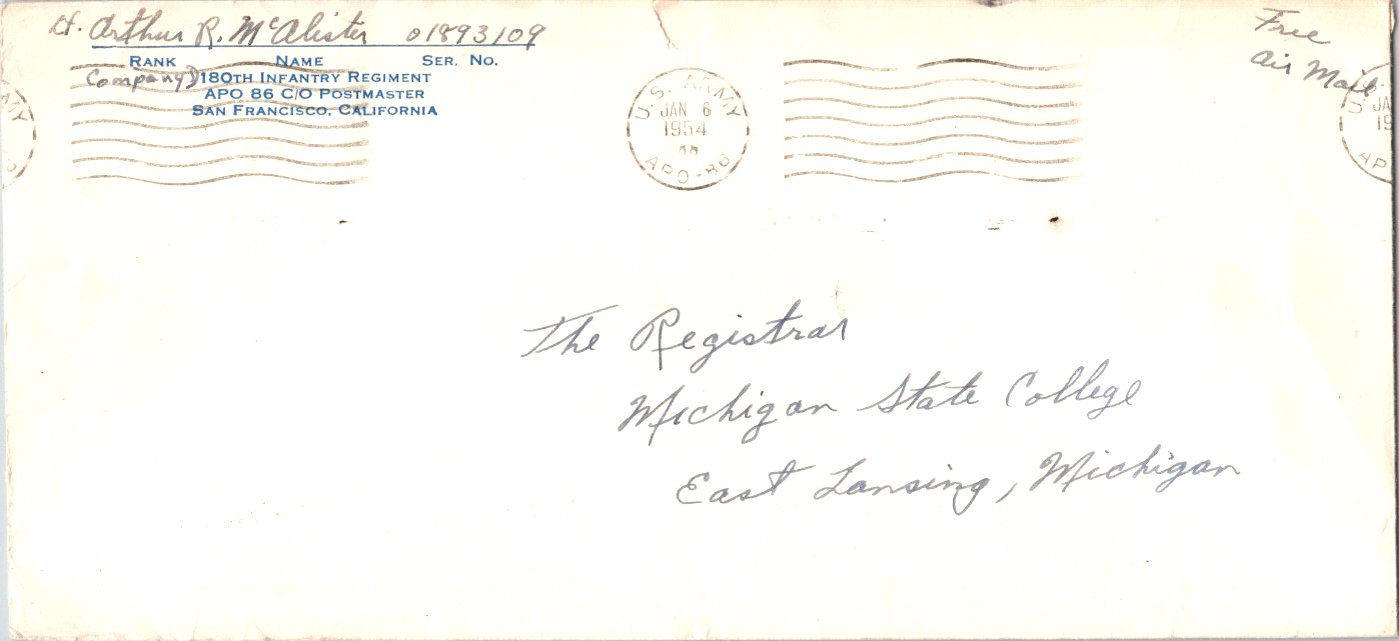 Lt. Arthur R. McAlister 01893109
RANK NAME SER. NO.
Company D 180TH INFANTRY REGIMENT
APO 86 C/O POSTMASTER
SAN FRANCISCO, CALIFORNIA
Free
Air Mail
U.S. ARMY
JAN 6
1954
APO-86
U.S.
JA
19
AP
The Registrar
Michigan State College
East Lansing, Michigan